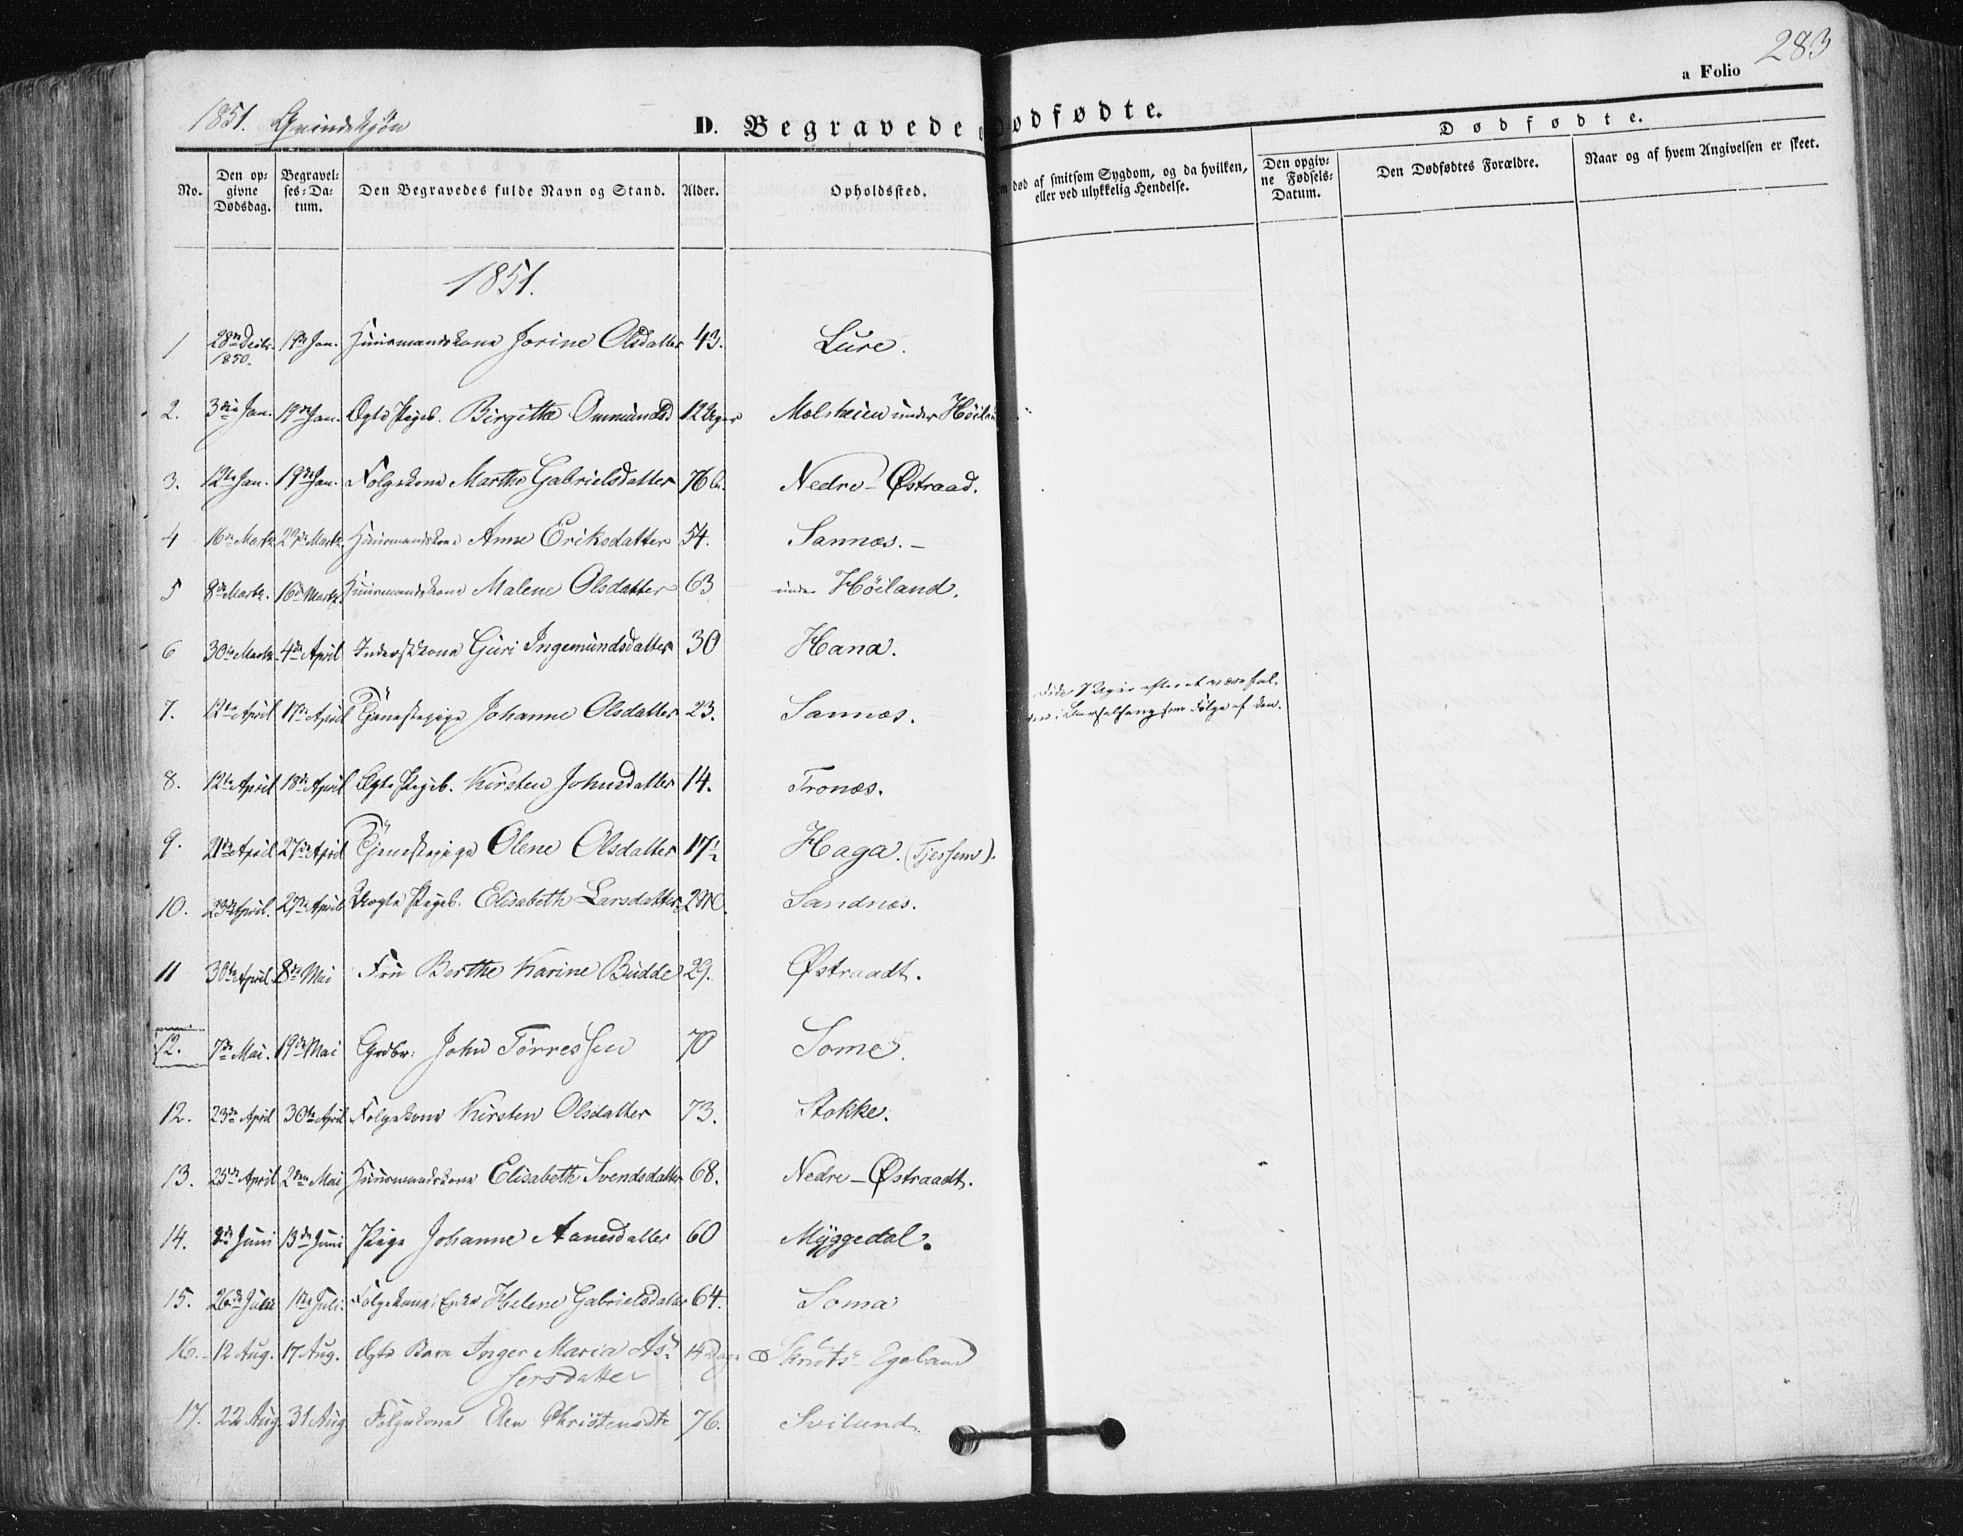 283
a Folio
1851. Qvindekjøn
D. Begravede o dødfødte.
Dødfødte.
No.
Den opgivne Dødsdag.
Begravelses-Datum.
Den Begravedes fulde Navn og Stand.
Alder.
Opholdssted.
død af smitsom Sygdom, og da hvilken, eller ved ulykkelig Hendelse.
Den opgivne Fødsels-Datum.
Den Dødfødtes Forældre.
Naar og af hvem Angivelsen er skeet.
1851.
1 28de Decbr. 1850. Jan. Huusmandskone Jorine Olsdatter 43. Lure.
2. 3die Jan. 19de Jan. Ægte Pigeb. Birgitte Ommundsd 12 Uger Molsheien under Höiland
3. 12te Jan. 19de Jan. Folgekone Marthe Gabrielsdatter 76 Nedre-Østraad.
4 16de Marts 23de Marts Huusmandskone Anne Eriksdatter 54. Sannæs. -
5 8de Marts. 16de Marts Huusmandskone Malene Olsdatter 63 under Höiland.
6 30te Marts 4de April Inderstkone Guri Ingemundsdatter 30 Hana.
7. 12te April 17de April Tjenestepige Johanne Olsdatter 23. Sannæs. som Følge af den.
8. 12te April 18de April Ægte Pigeb. Kirsten Johnsdatter 14. Tronæs.
9. 21de April 27de April Tjenestepige Olene Olsdatter 17½ Haga. (Tjessem).
10. 23de April. 27de April Uægte Pigeb. Elisabeth Larsdatter 2 M. Sandnæs.
11 30te April. 8de Mai Fru Berthe Karine Budde 29. Østraadt.
12. 7de Mai. 19de Mai Grdbr: John Tørressen 70 Some.
12. 23de April 30te April Folgekone Kirsten Olsdatter 73. Stokke.
13. 25de April 2den Mai Huusmandskone Elisabeth Svendsdatter 68. Nedre-Østraadt.
14. Juni 13de Juni Pige Johanne Aanesdatter 60 Myggedal.
15. 26de Juni 1ste Juli. Folgekone Enke Helene Gabrielsdatter 64. Soma
16. 12 Aug. 17 Aug. Ægte Barn Inger Maria As-
sersdatter 14 Dage Skruds Egeland
17. 22 Aug 31 Aug Folgekone Elen Christensdtr 76. Svilund.